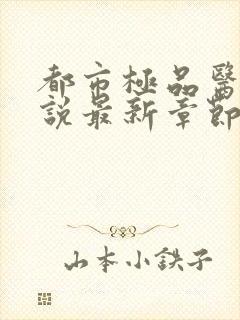 都市極品醫
說最新章節
山本小鉄子